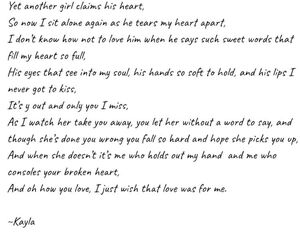 Yet another girl claims his heart,
So now I sit alone again as he tears my heart apart,
I don't know how not to love him when he says such sweet words that
fill my heart so full,
His eyes that see into my soul, his hands so soft to hold, and his lips I
never got to kiss,
It's y out and only you I miss,
As I watch her take you away, you let her without a word to say, and
though she's done you wrong you fall so hard and hope she picks you up,
And when she doesn't it's me who holds out my hand and me who
consoles your broken heart,
And oh how you love, I just wish that love was for me.
~Kayla